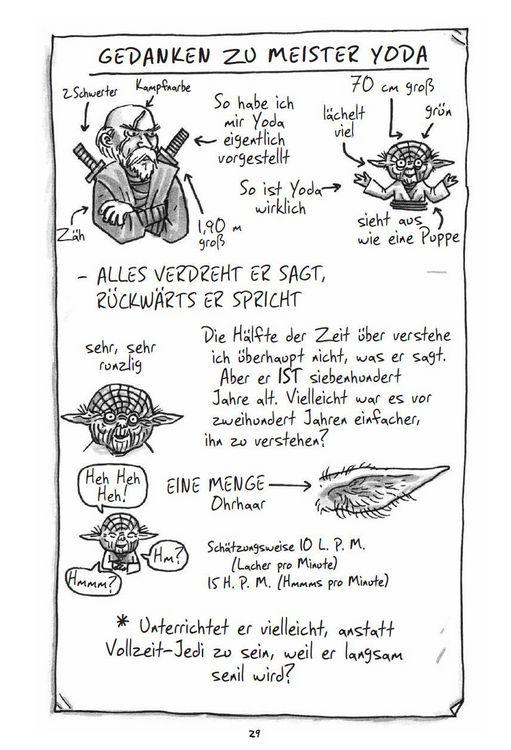 GEDANKEN ZU MEISTER YODA
2 Schwerter
Kampfnarbe
Zäh
1,90 m
groß
So habe ich
mir Yoda
eigentlich
vorgestellt
So ist Yoda
wirklich
70 cm groß
lächelt
viel
grün
sieht aus
wie eine Puppe
- ALLES VERDREHT ER SAGT,
RÜCKWÄRTS ER SPRICHT
sehr, sehr
runzlig
Die Hälfte der Zeit über verstehe
ich überhaupt nicht, was er sagt.
Aber er IST siebenhundert
Jahre alt. Vielleicht war es vor
zweihundert Jahren einfacher,
ihn zu verstehen?
Heh Heh
Heh!
Hm?
Hmmm?
EINE MENGE
Ohrhaar
Schätzungsweise 10 L. P. M.
(Lacher pro Minute)
15 H. P. M. (Hmmms pro Minute)
* Unterrichtet er vielleicht, anstatt
Vollzeit-Jedi zu sein, weil er langsam
senil wird?
29